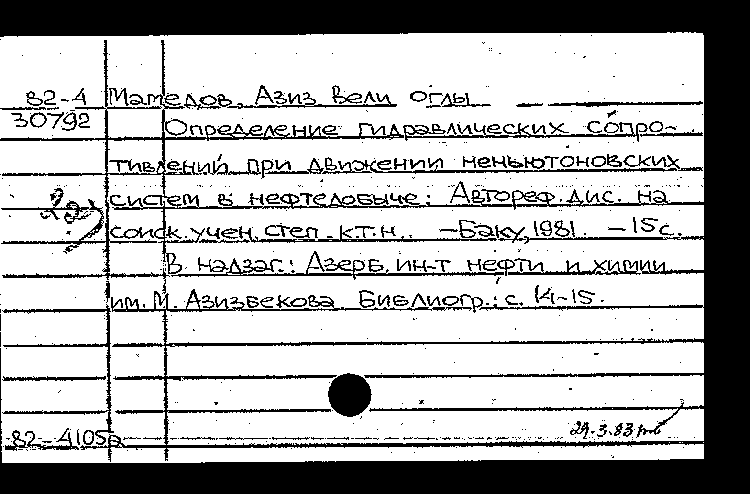 82-4 Мамедов, Азиз Вели оглы
30792 Определение гидравлических сопро-
тивлений при движении неньютоновских
систем в нефтедобыче: Автореф. дис. на
соиск. учен. степ. к.т.н. -Баку, 1981. -15 с.
В надзаг.: Азерб. ин-т нефти и химии
им. М. Азизбекова. Библиогр.: с. 14-15.
82-41052
29.3.83